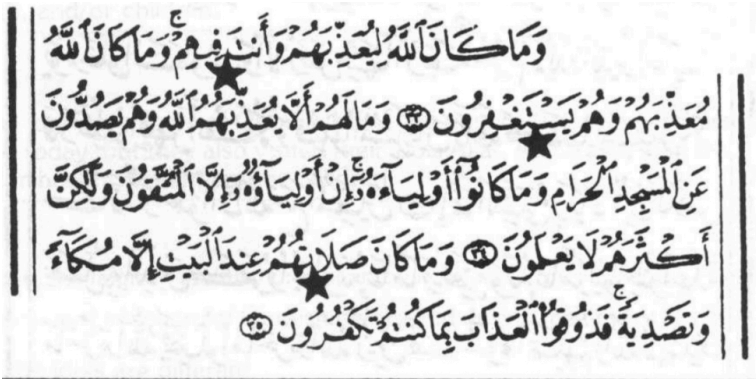 وَمَا كَانَ ٱللَّهُ لِيُعَذِّبَهُمْ وَأَنتَ فِيهِمْ ۚ وَمَا كَانَ ٱللَّهُ
مُعَذِّبَهُمْ وَهُمْ يَسْتَغْفِرُونَ ٣٣ وَمَا لَهُمْ أَلَّا يُعَذِّبَهُمُ ٱللَّهُ وَهُمْ يَصُدُّونَ
عَنِ ٱلْمَسْجِدِ ٱلْحَرَامِ وَمَا كَانُوٓا۟ أَوْلِيَآءَهُۥٓ ۚ إِنْ أَوْلِيَآؤُهُۥٓ إِلَّا ٱلْمُتَّقُونَ وَلَٰكِنَّ
أَكْثَرَهُمْ لَا يَعْلَمُونَ ٣٤ وَمَا كَانَ صَلَاتُهُمْ عِندَ ٱلْبَيْتِ إِلَّا مُكَآءً
وَتَصْدِيَةً ۚ فَذُوقُوا۟ ٱلْعَذَابَ بِمَا كُنتُمْ تَكْفُرُونَ ٣٥